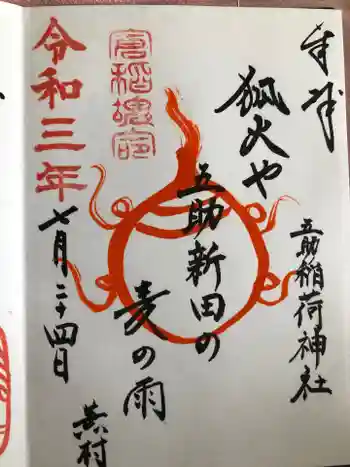 奉拝
五助稲荷神社
狐火や
五助新田の
麦の雨
蕪村
令和三年
七月二十四日